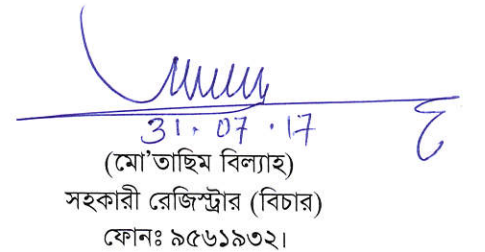 31.07.17
(মো'তাছিম বিল্যাহ)
সহকারী রেজিস্ট্রার (বিচার)
ফোনঃ ৯৫৬১৯৩২।